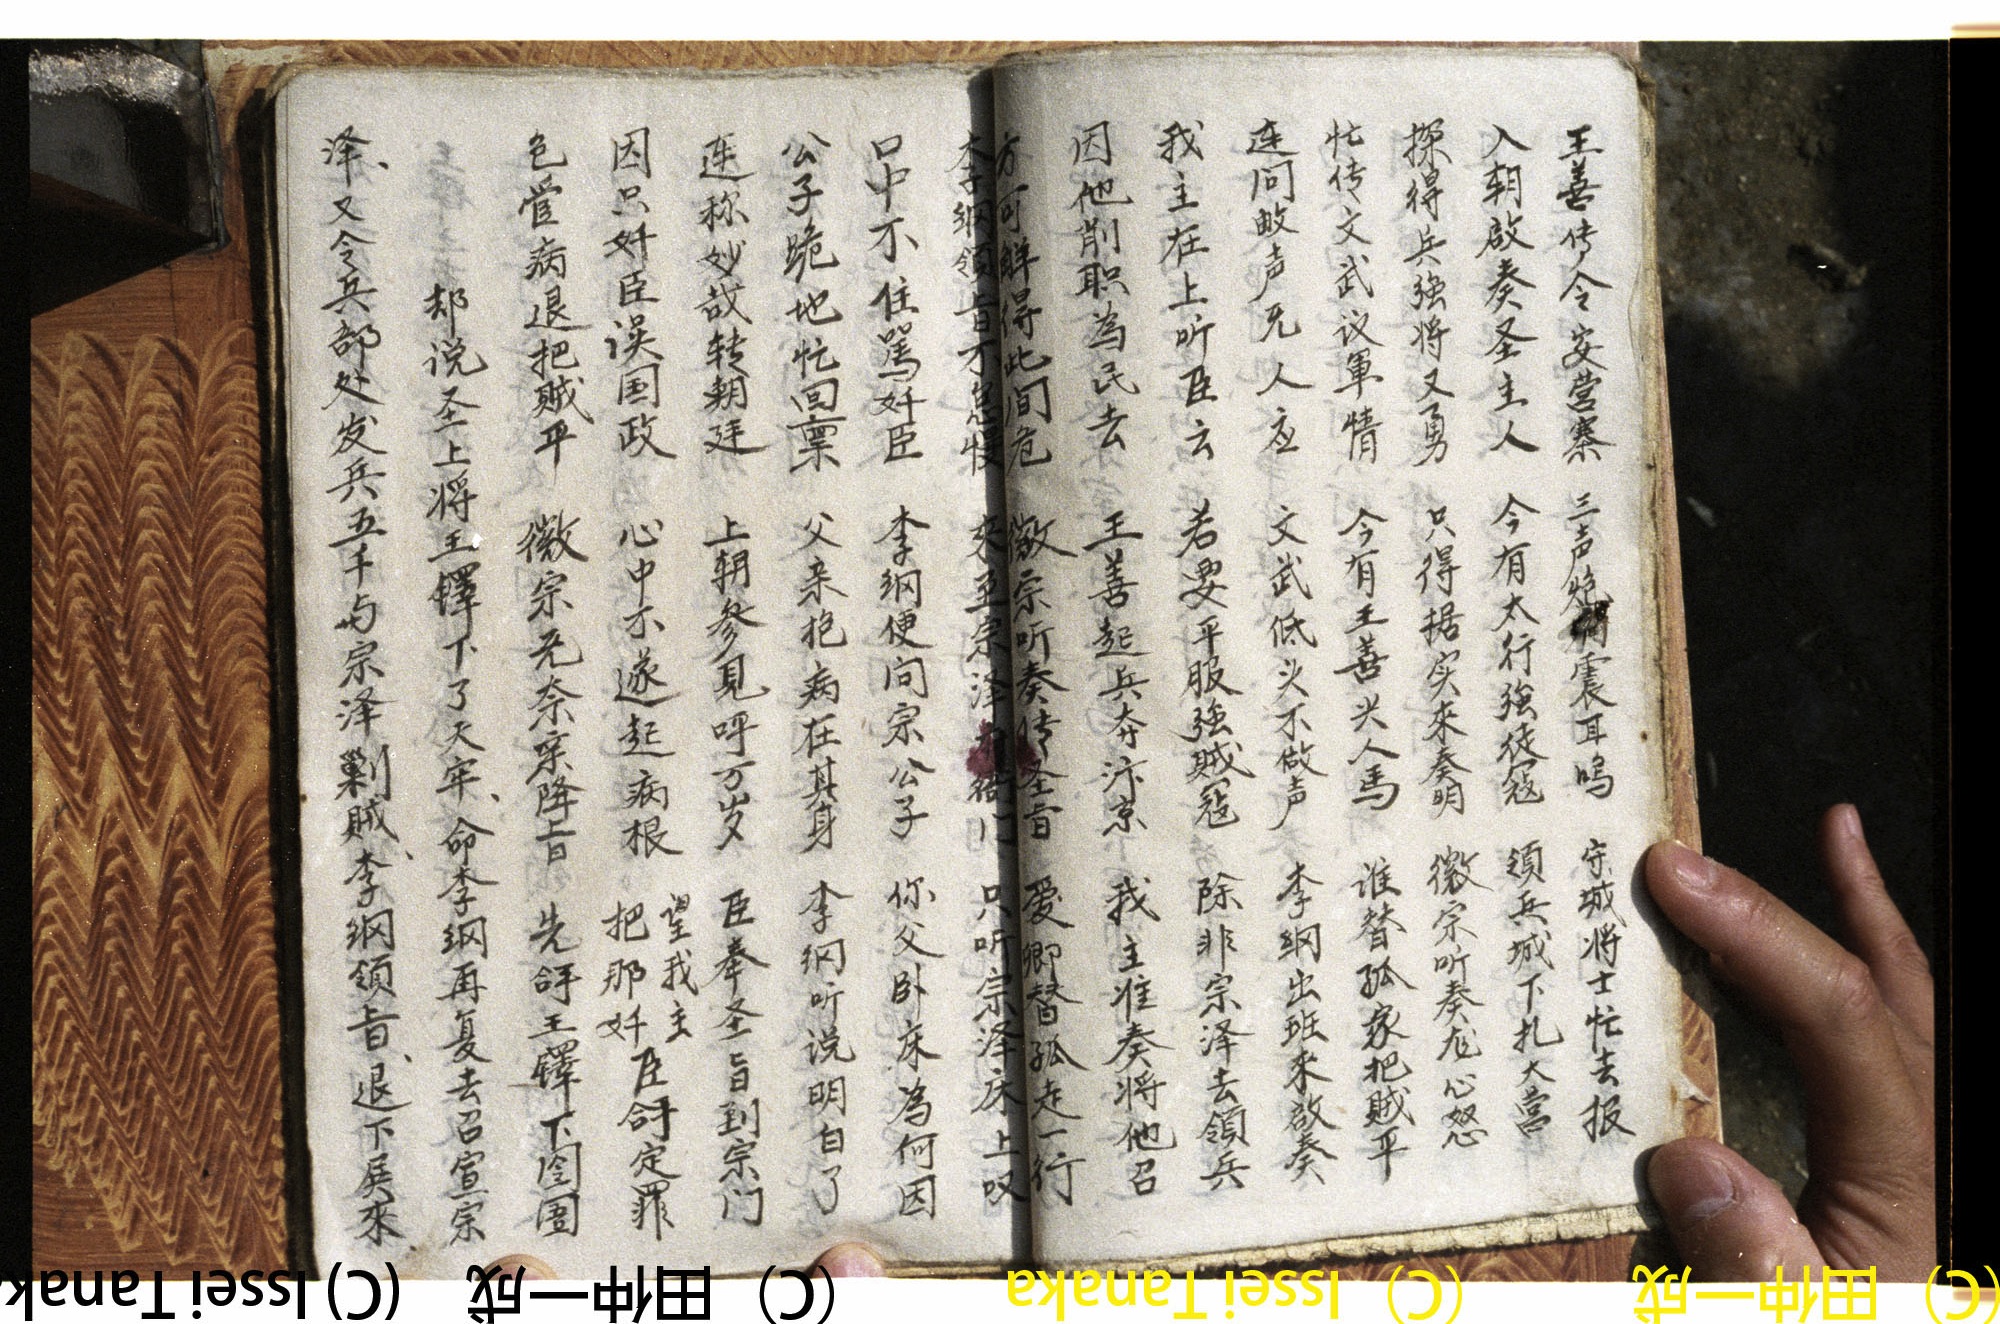 王善传令安营寨 三声炮响震耳鸣 守城将士忙去报
入朝啟奏圣主人 今有太行強徒寇 領兵城下扎大营
探得兵强将又勇 只得据实来奏明 徽宗听奏龙心怒
忙传文武议軍情 今有王善兴人馬 谁替孤家把贼平
连问数声无人应 文武低头不做声 李纲出班来啟奏
我主在上听臣云 若要平服強贼寇 除非宗泽去領兵
因他削职為民去 王善起兵夲汴京 我主准奏将他召
方可解得此间危 徽宗听奏传圣旨 爱卿替孤走一行
李纲領旨不怠慢 来至宗泽 门 只听宗泽床上叹
口中不住骂奸臣 李纲便问宗公子 你父卧床為何因
公子跪地忙回禀 父亲抱病在其身 李纲听说明白了
连称妙哉转朝廷 上朝参见呼万岁 臣奉圣旨到宗门
因只奸臣误国政 心中不遂起病根 望我主把那奸臣合手定罪
色管病退把贼平 徽宗无奈来降旨 先合手王鐸下囹圄
却说圣上将王鐸下了天牢、命李纲再复去召宣宗
泽、又令兵部处发兵五千与宗泽剿贼、李纲領旨、退下展來
(C) Issei Tanaka (C) 田仲一成 (C) Issei Tanaka (C) 田仲一成